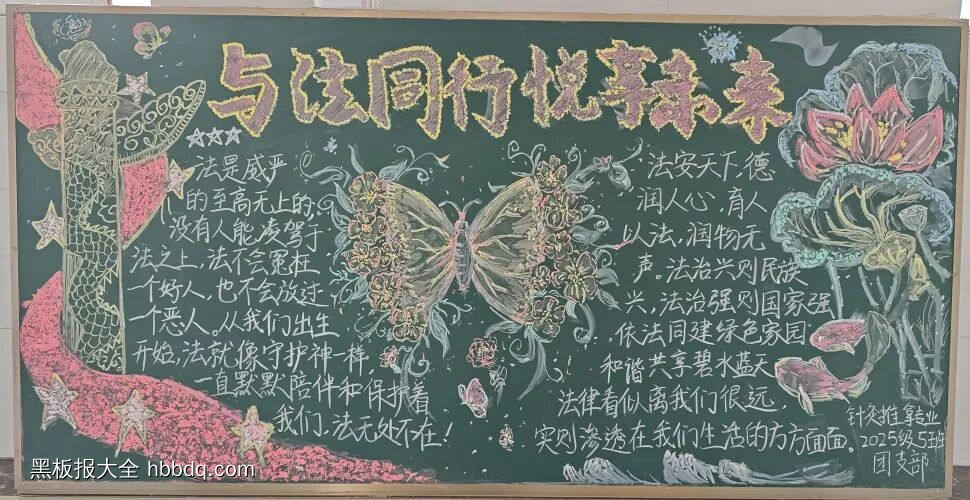 与法同行悦享未来
法是威严
的至高无上的,
没有人能凌驾于
法之上,法不会冤枉
一个好人,也不会放过
一个恶人。从我们出生
开始,法就像守护神一样,
一直默默陪伴和保护着
我们.法无处不在!
法安天下,德
润人心,育人
以法,润物无
声。法治兴则民族
兴,法治强则国家强
依法同建绿色家园
和谐共享碧水蓝天
法律看似离我们很远,
实则渗透在我们生活的方方面面。
针灸推拿专业
2025级5班
团支部
黑板报大全 hbbdq.com